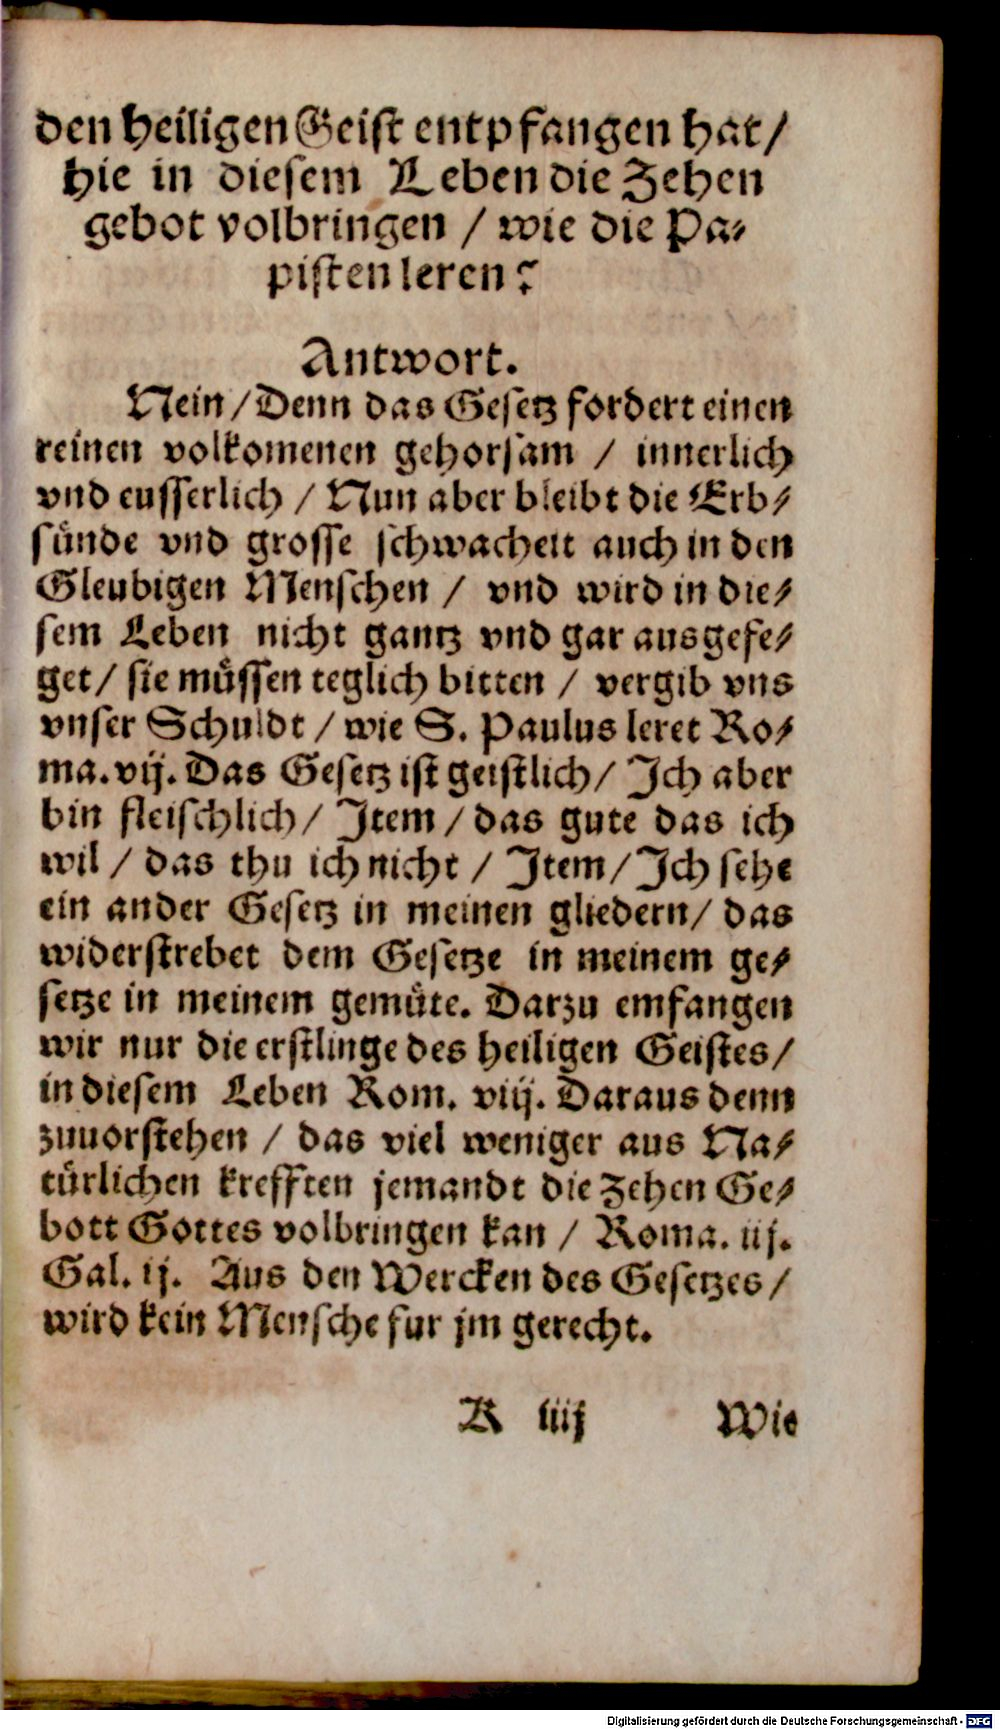 den heiligen Geist entpfangen hat/
hie in diesem Leben die Zehen
gebot volbringen / wie die Pa⸗
pisten leren?
Antwort.
Nein/Denn das Gesetz fordert einen
reinen volkomenen gehorsam / innerlich
vnd eusserlich / Nun aber bleibt die Erb⸗
sünde vnd grosse schwacheit auch in den
Gleubigen Menschen / vnd wird in die⸗
sem Leben nicht gantz vnd gar ausgefe⸗
get/ sie müssen teglich bitten / vergib vns
vnser Schuldt / wie S. Paulus leret Ro⸗
ma. vij. Das Gesetz ist geistlich/ Ich aber
bin fleischlich/ Item / das gute das ich
wil / das thu ich nicht / Item/ Ich sehe
ein ander Gesetz in meinen gliedern/ das
widerstrebet dem Gesetze in meinem ge⸗
setze in meinem gemüte. Darzu emfangen
wir nur die erstlinge des heiligen Geistes/
in diesem Leben Rom. viij. Daraus denn
zuuorstehen / das viel weniger aus Na⸗
türlichen krefften jemandt die Zehen Ge⸗
bott Gottes volbringen kan / Roma. iij.
Gal. ij. Aus den Wercken des Gesetzes /
wird kein Mensche fur jm gerecht.
K iiij Wie
Digitalisierung gefördert durch die Deutsche Forschungsgemeinschaft - DFG